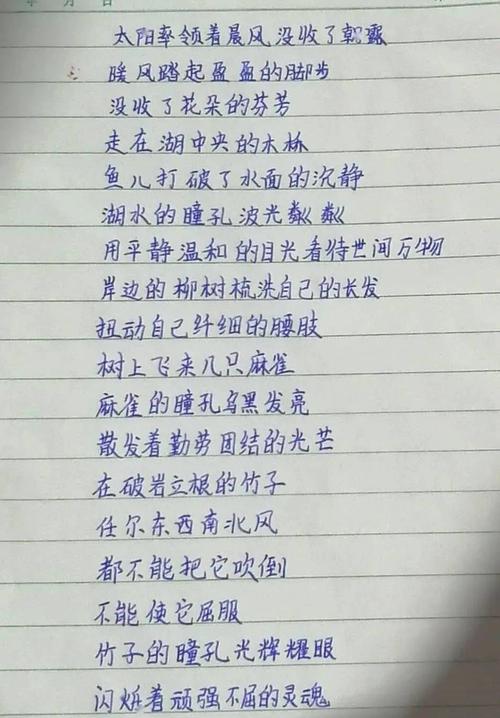 月 日
太阳率领着晨风没收了朝露
暖风踏起盈盈的脚步
没收了花朵的芬芳
走在湖中央的木桥
鱼儿打破了水面的沉静
湖水的瞳孔波光粼粼
用平静温和的目光看待世间万物
岸边的柳树梳洗自己的长发
扭动自己纤细的腰肢
树上飞来几只麻雀
麻雀的瞳孔乌黑发亮
散发着勤劳团结的光芒
在破岩立根的竹子
任尔东西南北风
都不能把它吹倒
不能使它屈服
竹子的瞳孔光辉耀眼
闪烁着顽强不屈的灵魂